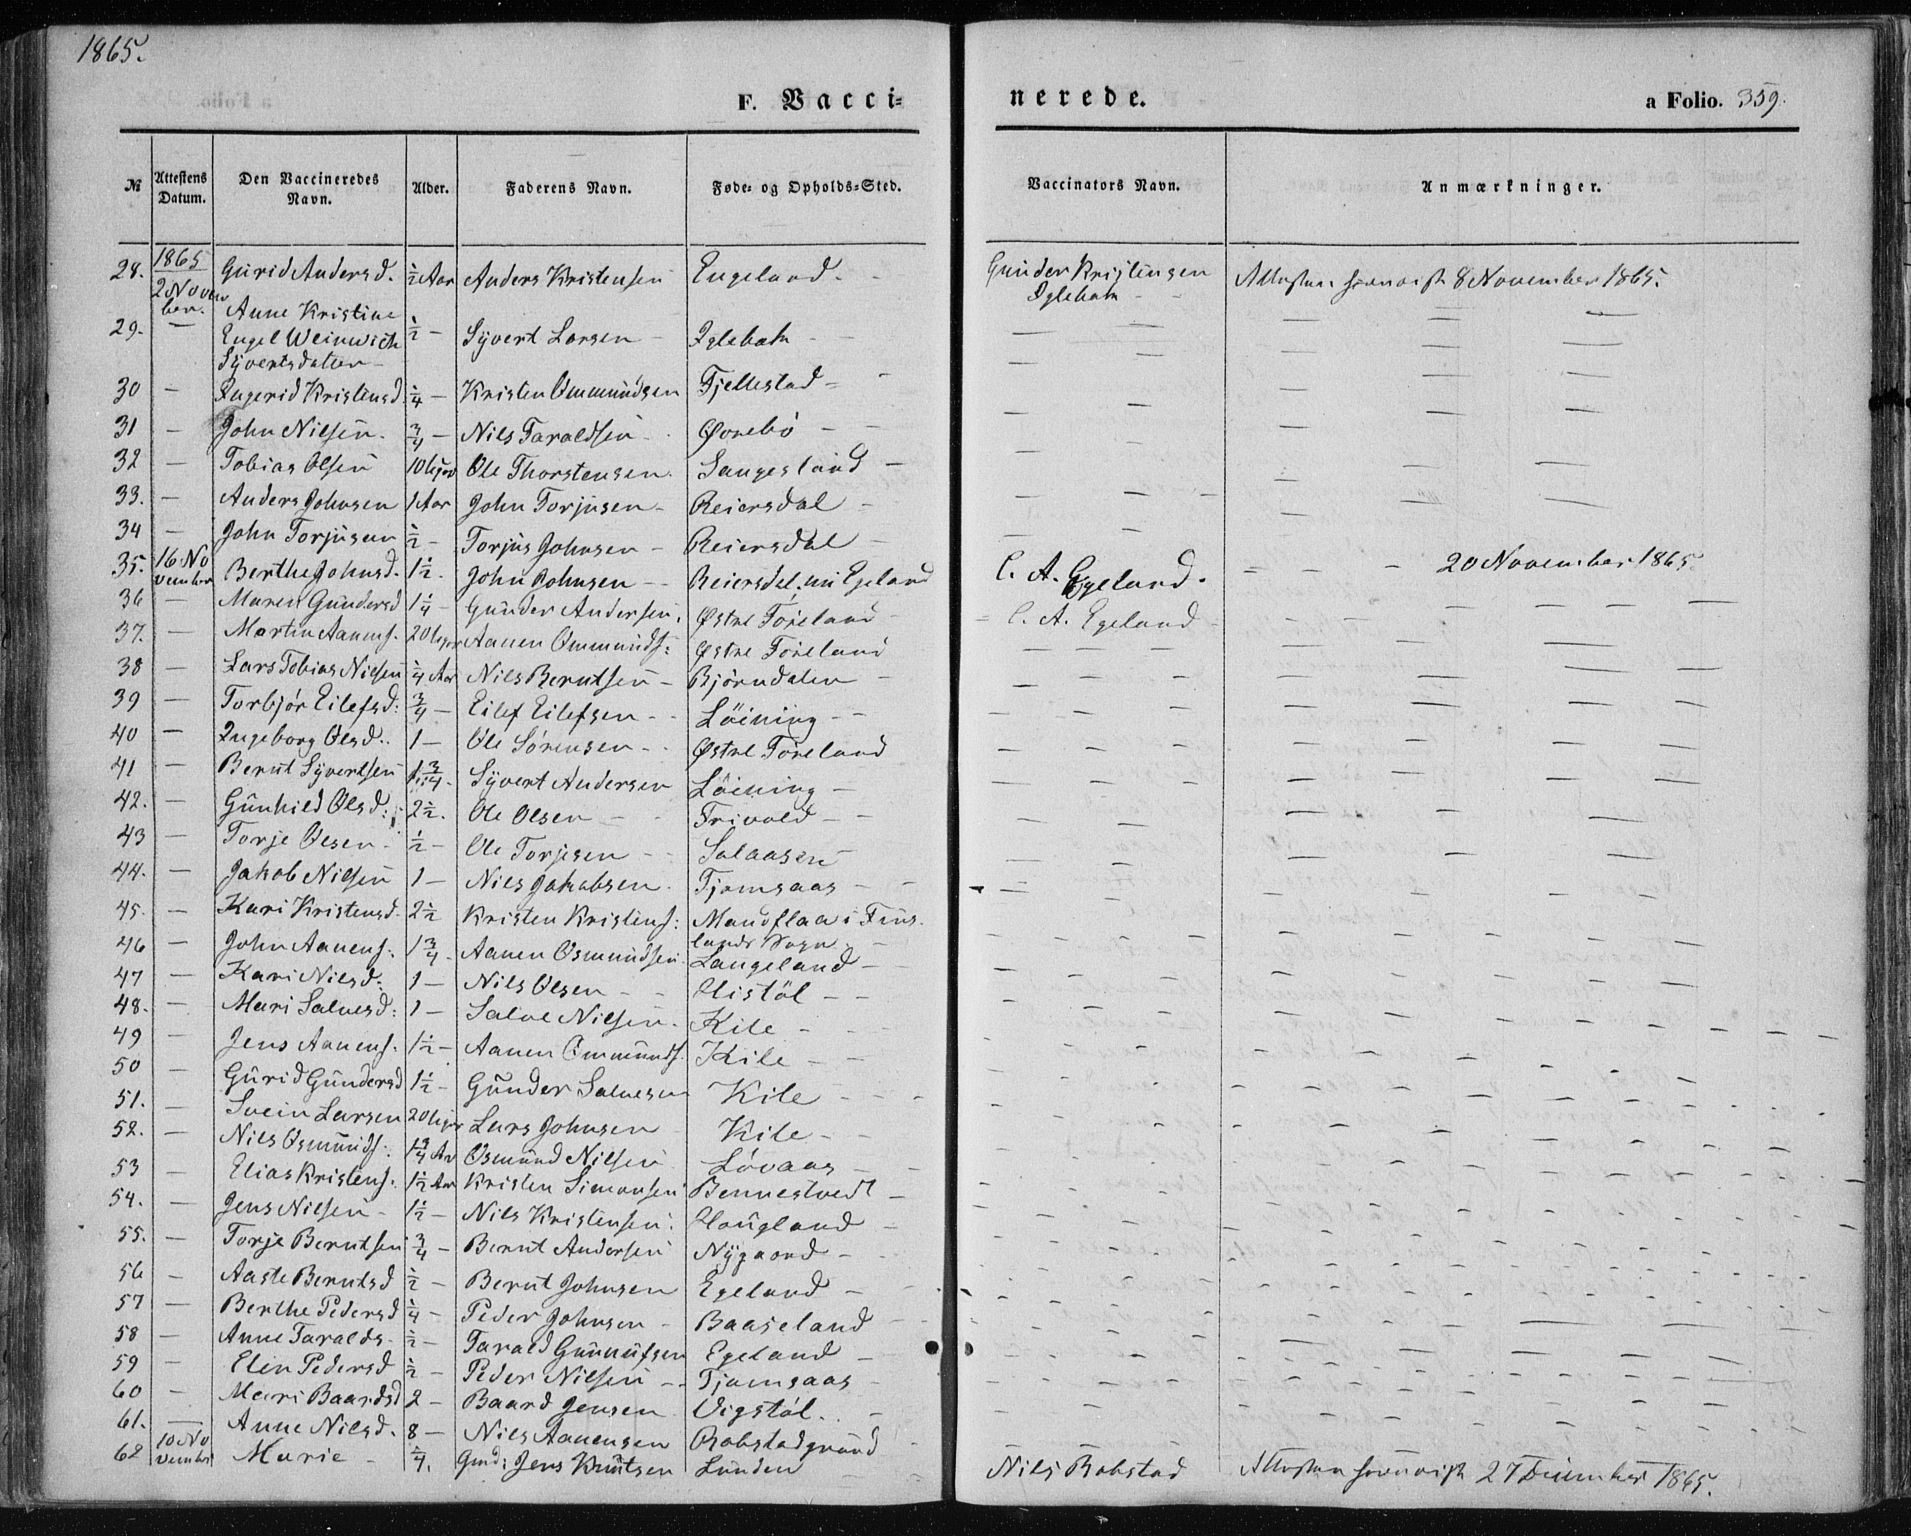 1865.
F. Vacci=
nerede.
a Folio. 359.
№
Attestens Datum.
Den Vaccineredes Navn.
Alder.
Faderens Navn.
Føde= og Opholds=Sted.
Vaccinators Navn.
Anmærkninger.
28. 1865 2 November. Gurid Andersd. ½ Aar Anders Kristensen Engeland. - Gunder Kristensen Igleham - Attesten fremvist 8 November 1865.
29. — Anne Kristine
Engel Weinwich ½ — Syvert Larsen — Iglebæk - -
Syvertsdatter —
30 — Ingerid Kristensd. ¼ — Kristen Ommundsen Fjellestad -
31 — John Nilsen. ¾ — Nils Taraldsen - Øvrebø - -
32 — Tobias Olsen 10 Uger Ole Thorstensen. Langesland -
33. — Anders Johnsen 1 Aar John Torjusen - Reiersdal -
34 — John Torjusen ½ — Torjus Johnsen - Reiersdal -
35. 16 November Berthe Johnsd. 1½. John Johnsen - Reiersdal, nu Egeland C. A. Egeland. - - - 20 November 1865
36 — Maren Gundersd 1¼ — Gunder Andersen. Østre Føreland - C. A. Egeland -
37. — Martin Aanens. 20 Uger Aanen Ommunds: Østre Føreland
38 — Lars Tobias Nilsen ¼ Aar Nils Berntsen - Bjørndalen -
39 — Torbjør Eilefsd: ¾ — Eilef Eilefsen - - Løining - -
40 — Ingeborg Olsd.. 1 — Ole Sørensen - - Østre Føreland
41 — Bernt Syvertsen 1¾ - Syvert Andersen Løining -
42. — Gunhild Olsd: 2½. Ole Olsen - - Frivold - -
43 — Torje Olsen - ½ — Ole Torjesen - - Salaasen
44. — Jakob Nilsen 1 — Nils Jakobsen. Tjomsaas - -
45. — Kari Kristensd. 2½ Kristen Kristens: Mandflaa i Fins
lands Sogn -
46 — John Aanens. 1¾ - Aanen Osmundsen. Langeland -
47 — Kari Nilsd: 1 — Nils Olsen - - Histøl - -
48. — Mari Salvesd: 1 — Salve Nilsen - Kile - -
49 — Jens Aanens. 1½ — Aanen Ommunds. Kile - -
50 — Gurid Gundersd 1½ - Gunder Salvesen Kile - - -
51. — Svein Larsen 20 Uger Lars Johnsen Kile - -
52. — Nils Osmunds: 1¾ Ar Osmund Nilsen Løvaas - -
53 — Elias Kristens. 1½ Aar Kristen Simonsen Bennestvedt -
54. — Jens Nilsen - 1½ — Nils Kristensen. Haugland -
55. — Torje Berntsen ¾ — Bernt Andersen Nygaard -
56 — Aaste Berntsd ½ — Bernt Johnsen Egeland -
57 — Berthe Pedersd ¼ — Peder Johnsen - Baaseland - -
58 — Anne Taralds. ½ — Tarald Gunnufsen Egeland -
59 — Elin Pedersd ½ — Peder Nilsen - - Tjomsaas -
60 — Mari Baardsd 2 — Baard Jensen Vigstøl. -
61. — Anne Nilsd. 8 — Nils Aanensen Robstadgrund -
62 10 November Marie - ¼. Gmd: Jens Knutsen Lunden - Nils Robstad Attesten fremvist 27 December 1865.